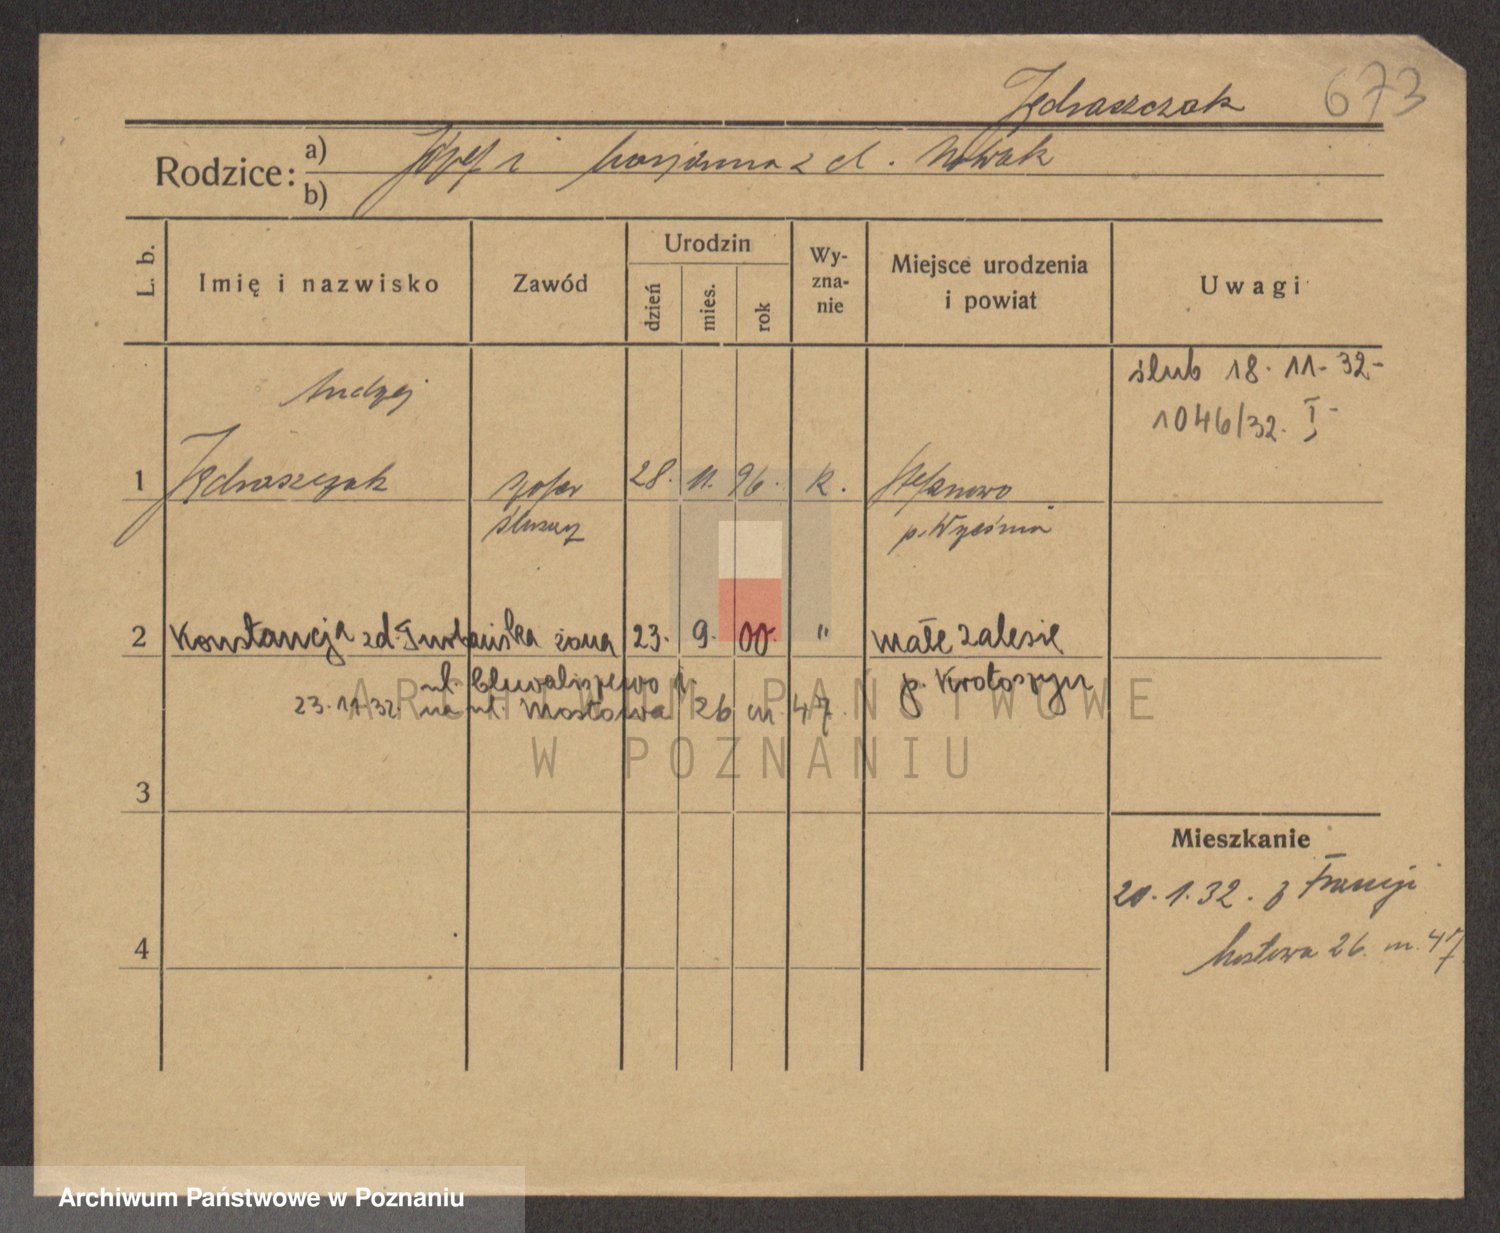 Jędraszczak 673
Rodzice: a) Józef i Marjanna z d. Nowak
b)
L. b. Imię i nazwisko Zawód Urodzin dzień mies. rok Wyznanie Miejsce urodzenia i powiat Uwagi
ślub 18. 11. 32-
1046/32. I-
Andrzej
1 Jędraszczak szofer 28. 11. 96. k. Stefanowo
ślusarz p. Września
2 Konstancja zd. Turbańska żona 23. 9. 00. " Małe Zalesie
ul. Chwaliszewo p. Krotoszyn
23.11.32. na ul. Mostowa 26 m 47.
3
Mieszkanie
20.1.32. z Francji
4 Mostowa 26. m. 47
ARCHIWUM PAŃSTWOWE
W POZNANIU
Archiwum Państwowe w Poznaniu